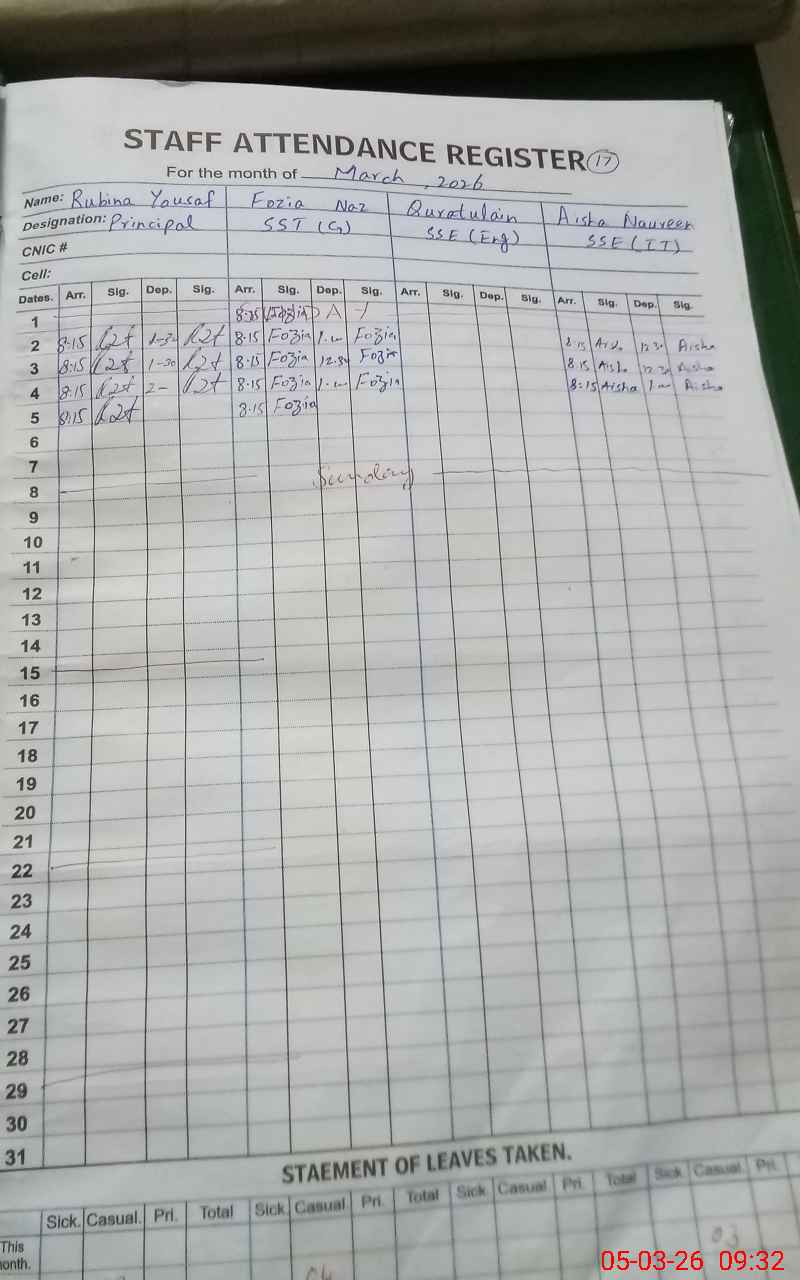 STAFF ATTENDANCE REGISTER 17
For the month of March, 2026
Name: Rubina Yousaf Fozia Naz Quratulain Aisha Naureen
Designation: Principal SST (G) SSE (Eng) SSE (IT)
CNIC #
Cell:
Dates. Arr. Sig. Dep. Sig. Arr. Sig. Dep. Sig. Arr. Sig. Dep. Sig. Arr. Sig. Dep. Sig.
1 8:15 Fozia
2 8:15 8:15 Fozia Fozia 8:15 12:30 Aisha
3 8:15 1-30 8:15 Fozia 12:30 Fozia 8:15 Aisha 12:30 Aisha
4 8:15 2- 8:15 Fozia Fozia 8:15 Aisha Aisha
5 8:15 8:15 Fozia
6
7
8 Sunday
9
10
11
12
13
14
15
16
17
18
19
20
21
22
23
24
25
26
27
28
29
30
31
STAEMENT OF LEAVES TAKEN.
Sick. Casual. Pri. Total Sick. Casual Pri. Total Sick Casual Pri. Total Sick Casual. Pri.
This
onth. 03
05-03-26 09:32